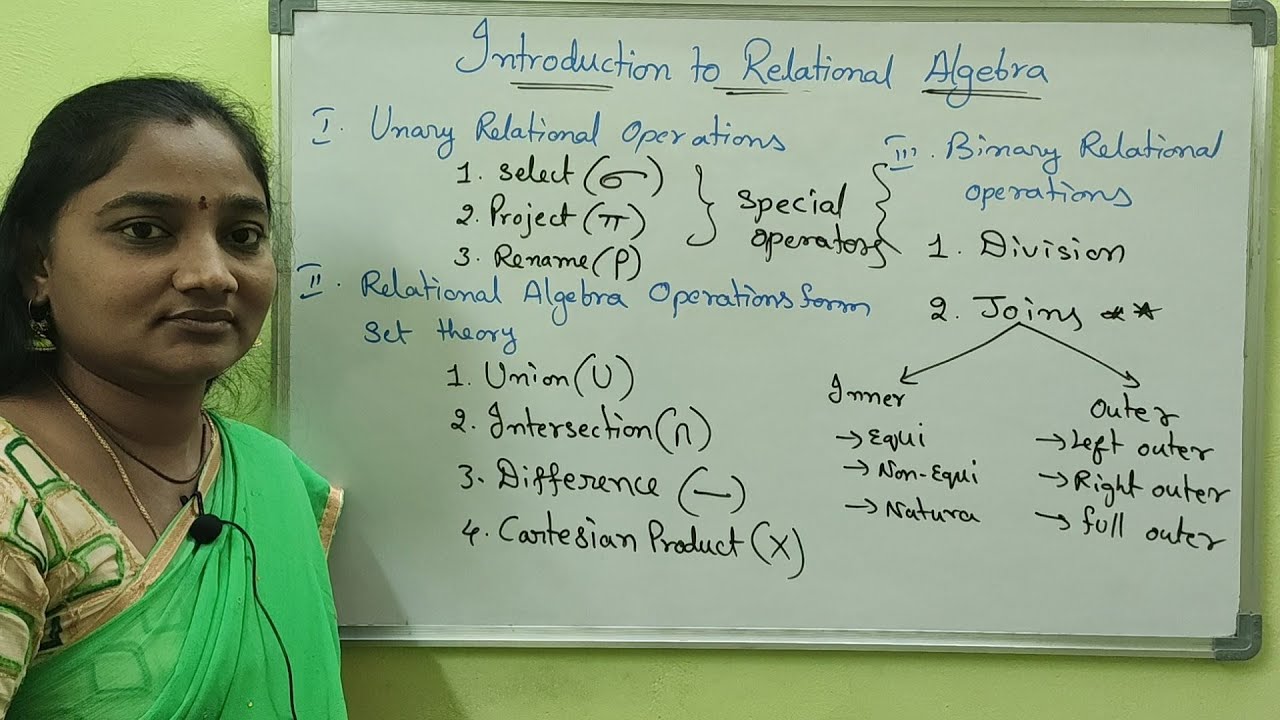 Introduction to Relational Algebra
I. Unary Relational Operations
1. select (σ)
2. Project (π)
3. Rename (ρ)
special
operators
II. Relational Algebra Operations form
set theory
1. Union (∪)
2. Intersection (∩)
3. Difference (—)
4. Cartesian Product (X)
III. Binary Relational
operations
1. Division
2. Joins **
Inner
→ Equi
→ Non-Equi
→ Natura
Outer
→ Left outer
→ Right outer
→ full outer